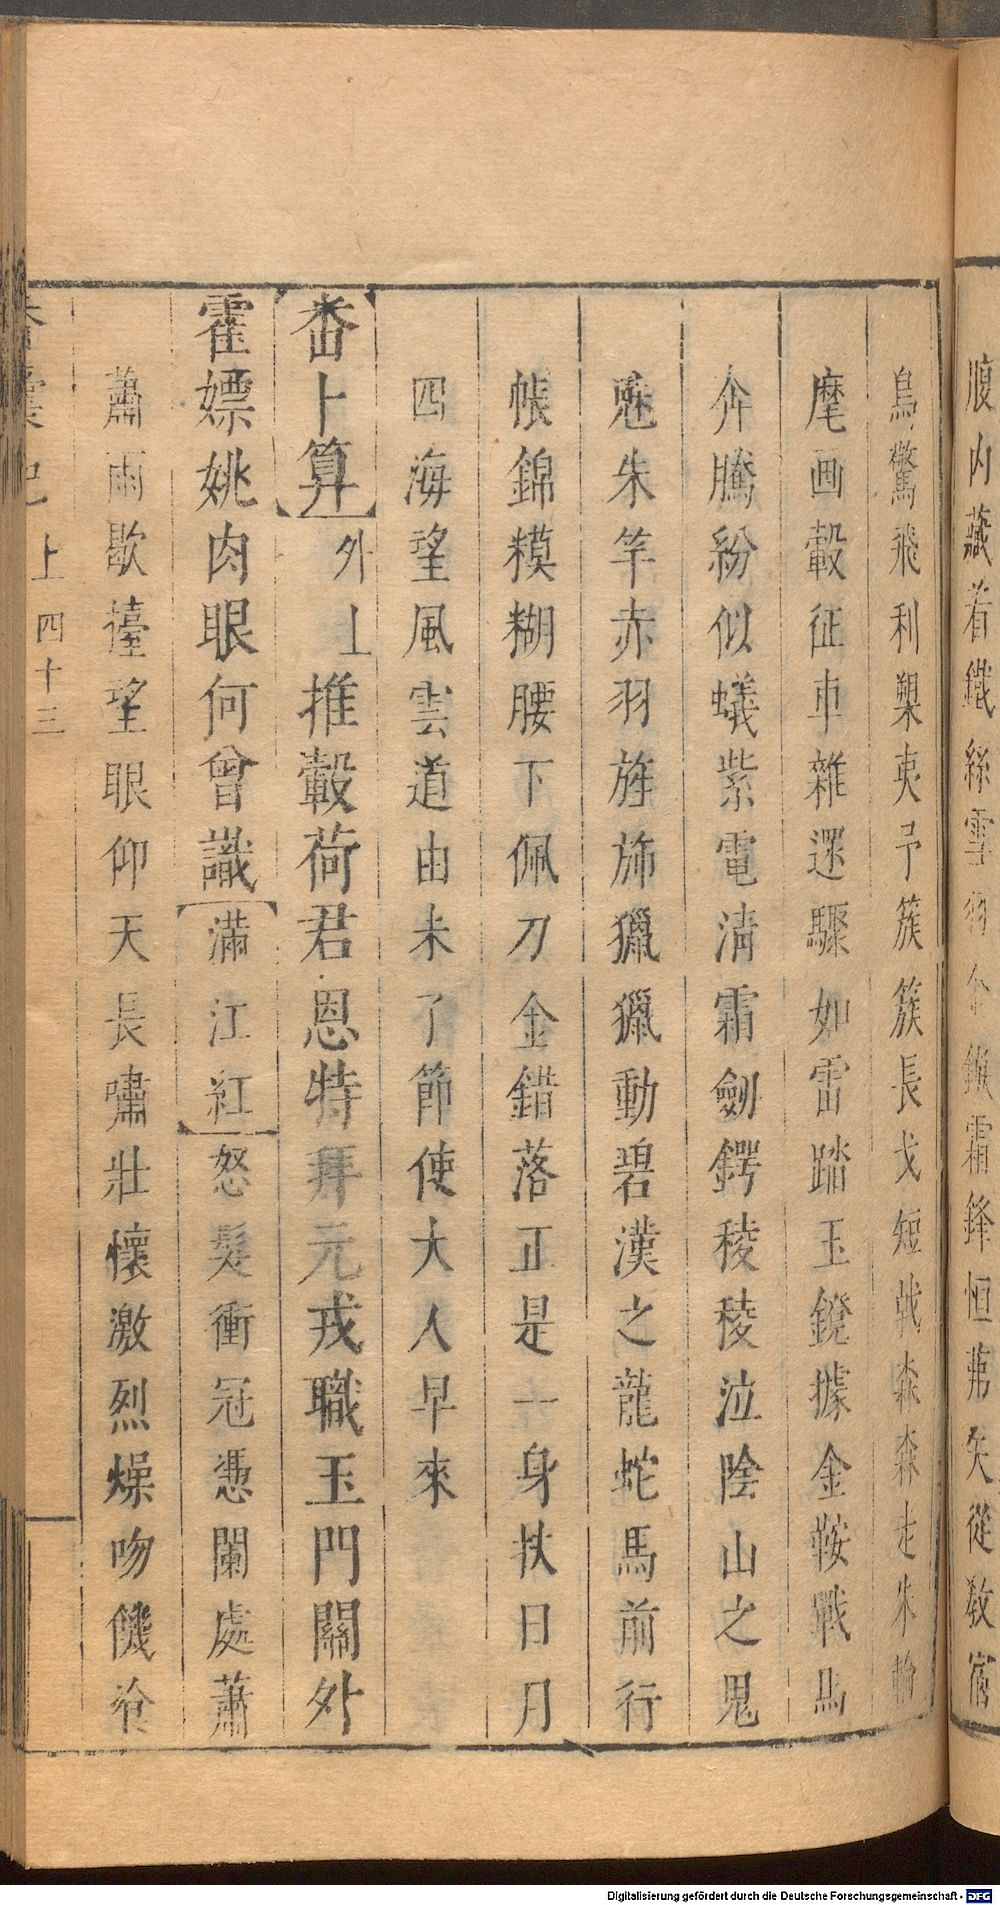 腹內藏着鐵絲雪羽金鏃霜鋒恒弗矢從教宿
烏驚飛利槊夷予簇簇長戈短戟森森走朱輪
麾画轂征車雜遝驟如雷踏玉鐙據金鞍戰馬
奔騰紛似蟻紫電清霜劒鍔稜稜泣陰山之鬼
魅朱竿赤羽旌旆獵獵動碧漢之龍蛇馬前行
帳錦糢糊腰下佩刀金錯落正是一身扶日月
四海望風雲道由未了節使大人早來
【卜算】外上推轂荷君恩特拜元戎職玉門關外
霍嫖姚肉眼何曾識【滿江紅】怒髮衝冠憑闌處蕭
蕭雨歇擡望眼仰天長嘯壯懷激烈燥吻饑
上 四十三
Digitalisierung gefördert durch die Deutsche Forschungsgemeinschaft - DFG